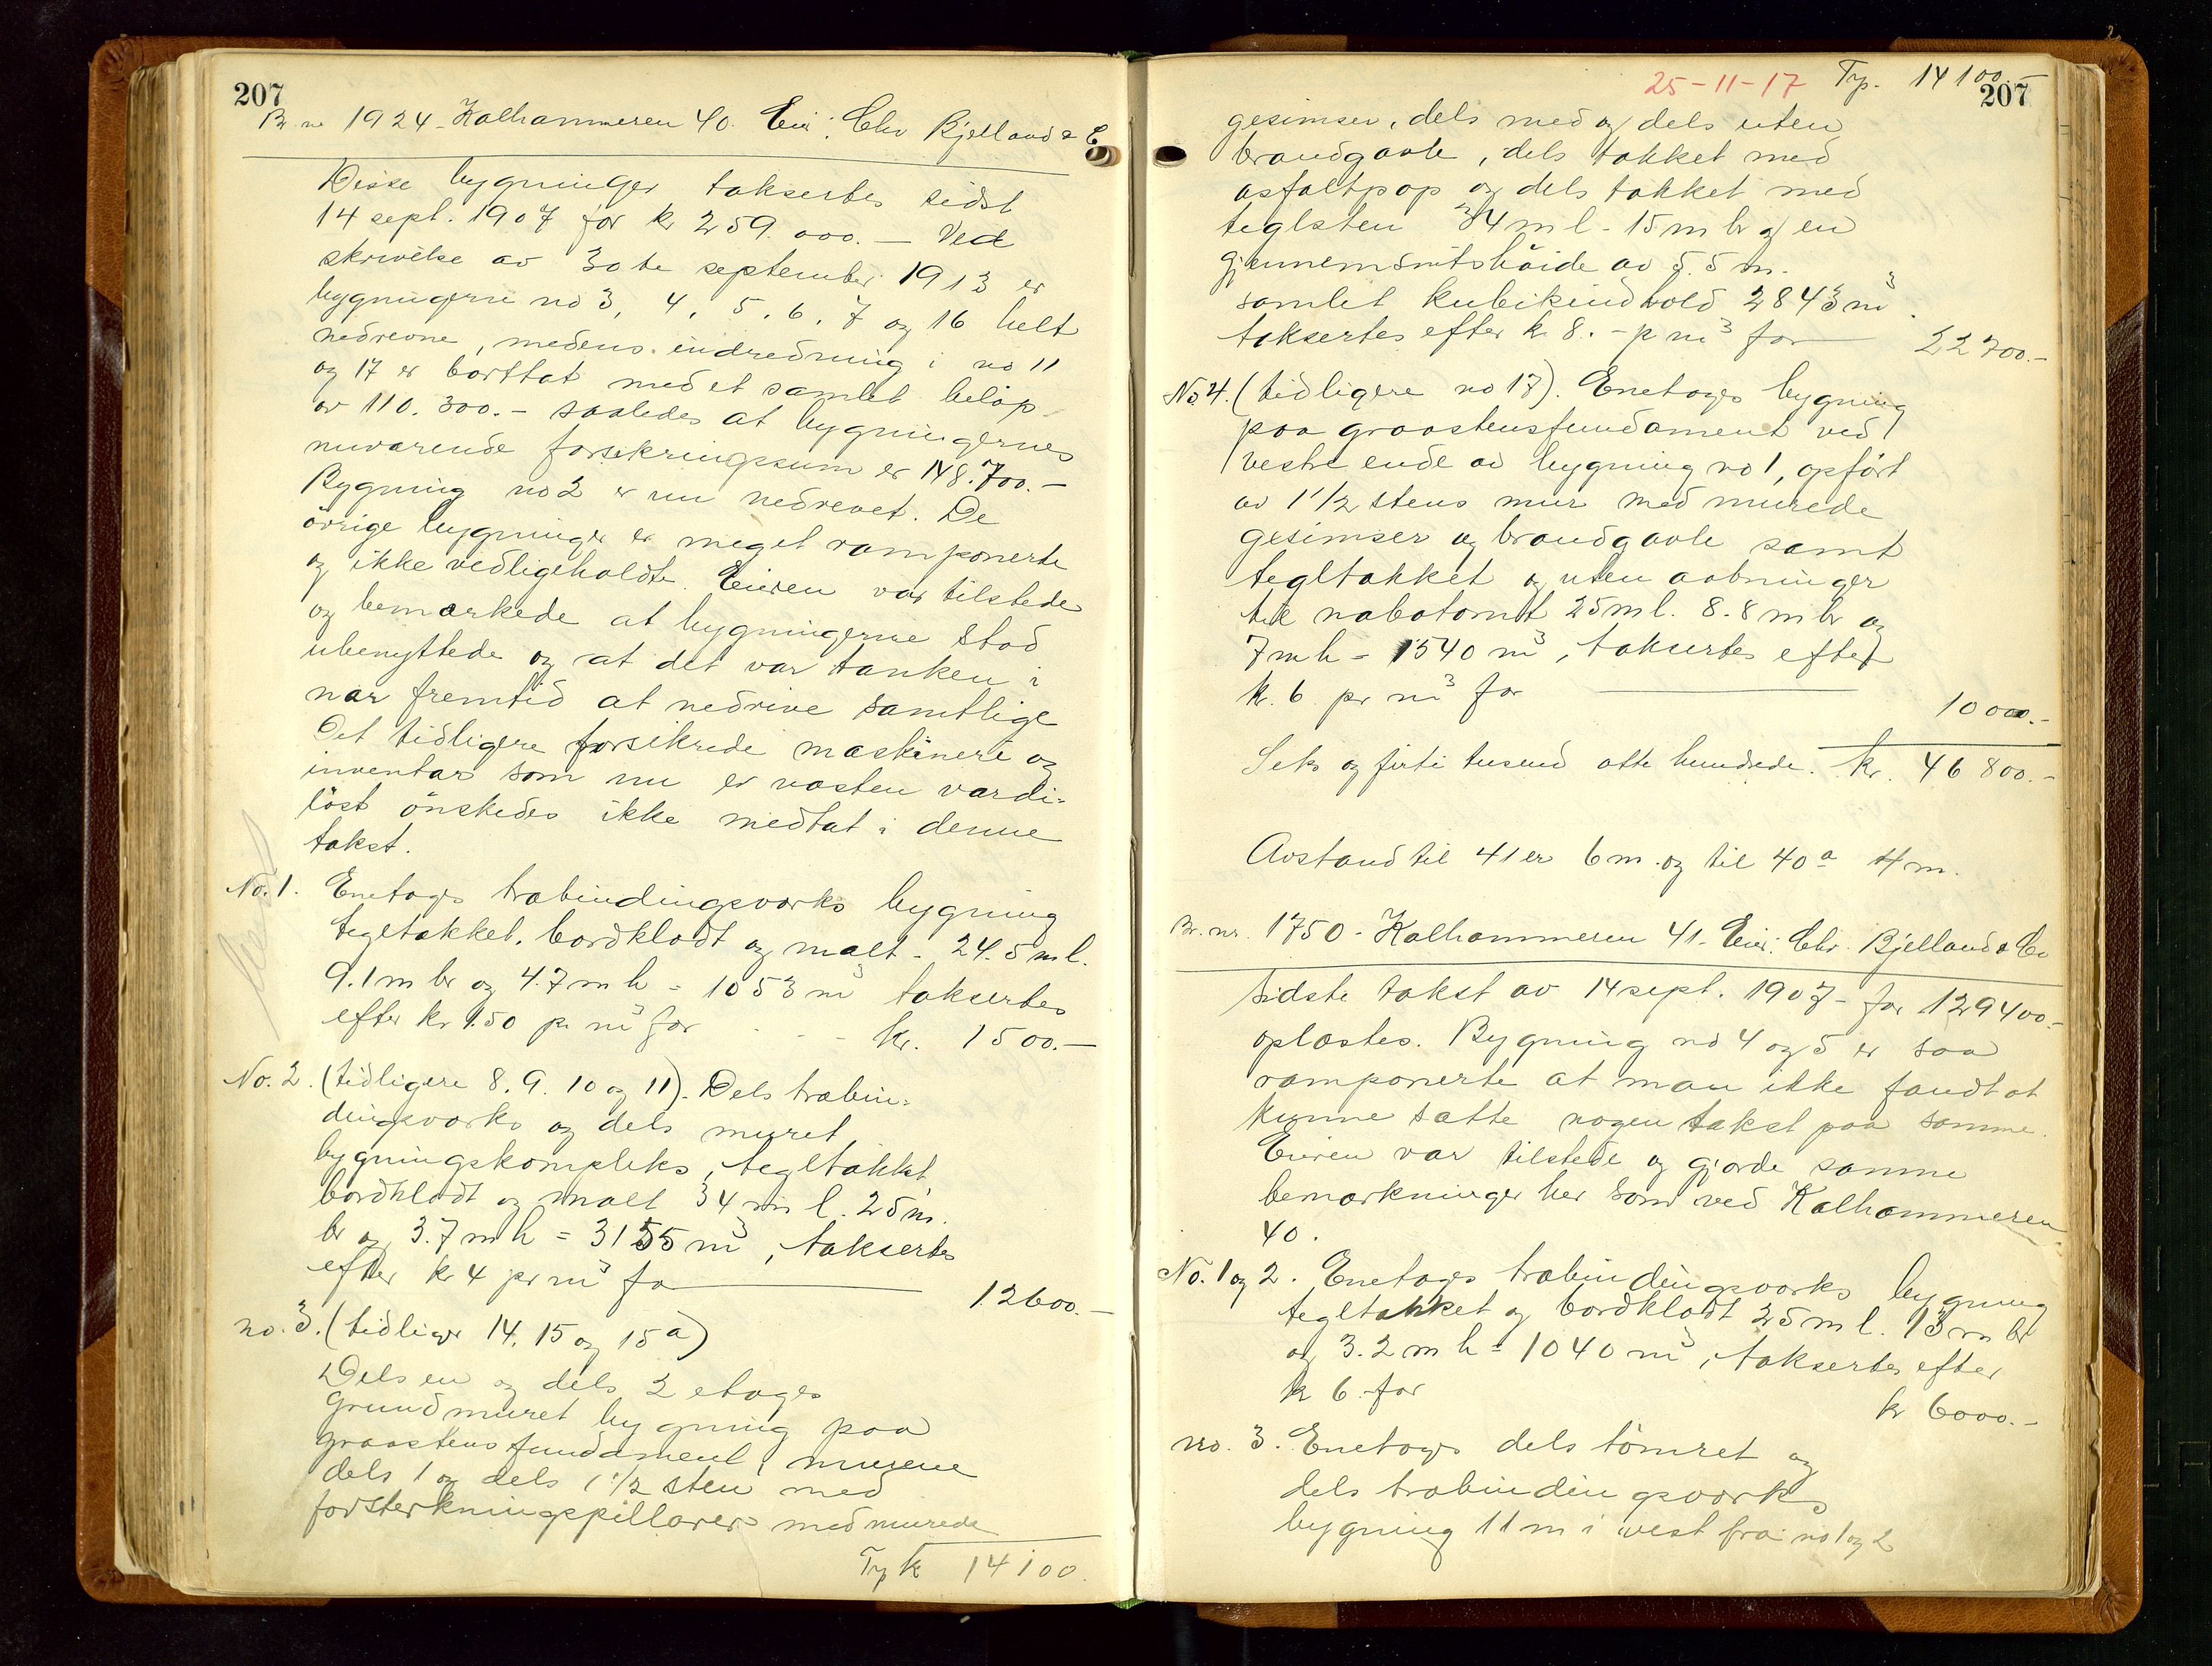 207
Br. nr 1924 - Kalhammeren 40. Eier: Chr Bjelland & C
Disse bygninger taksertes sidst
14 sept. 1907 for kr 259.000.- Ved
skrivelse av 30te september 1913 er
bygningerne no 3, 4, 5, 6, 7 og 16 helt
nedrevne, medens indredning i no 11
og 17 er borttat med et samlet beløp
av 110.300.- saaledes at bygningernes
nuværende forsikringssum er 148.700.-
Bygning no 2 er nu nedrevet. De
övrige bygninger er meget ramponerte
og ikke vedligeholdte. Eieren var tilstede
og bemærkede at bygningerne stod
ubenyttede og at det var tanken i
nær fremtid at nedrive samtlige
Det tidligere forsikrede maskineri og
inventar som nu er næsten værdi=
löst önskedes ikke medtat i denne
takst.
No. 1. Enetages træbindingsverks bygning
tegltækket, bordklædt og malt - 24.5 m l.
9.1 m br og 4.7 m h = 1053 m³ taksertes
efter kr 1.50 pr m³ for - - kr. 1500.-
No. 2. (tidligere 8. 9. 10 og 11). Dels træbin=
dingsverks og dels muret
bygningskompleks, tegltækket,
bordklædt og malt 34 m l. 25 m.
br og 3.7 m h = 3155 m³, taksertes
efter kr 4 pr m³ fo 12600.-
no. 3. (tidliger 14, 15 og 15a)
Dels en og dels 2 etages
grundmuret bygning paa
graastensfundament, murene
dels 1 og dels 1 1/2 sten med
forsterkningspillarer med murede
Tp k 14100.
25-11-17 Tp. 14100.-
207
gesimser, dels med og dels uten
brandgavle, dels tækket med
asfaltpap og dels tækket med
teglsten 34 m l - 15 m br og en
gjennemsnitshöide av 5.5 m.
samlet kubikindhold 2843 m³.
taksertes efter k 8.- p m³ for 22700.-
No 4. (tidligere no 17). Enetages bygning
paa graastensfundament ved
vestre ende av bygning no 1, opfört
av 1 1/2 stens mur med murede
gesimser og brandgavle samt
tegltækket og uten aabninger
til nabotomt 25 m l. 8.8 m br og
7 m h = 1540 m³, taksertes efter
k. 6 pr m³ for 10000.-
Seks og firti tusend otte hundrede. kr. 46800.-
Avstand til 41 er 6 m. og til 40a 4 m.
Br. nr. 1750 - Kalhammeren 41 - Eier: Chr. Bjelland & Co
Sidste takst av 14 sept. 1907 - for 129400.-
oplæstes. Bygning no 4 og 5 er saa
ramponerte at man ikke fandt at
kunne sætte nogen takst paa samme.
Eieren var tilstede og gjorde samme
bemærkninger her som ved Kalhammeren
40.
No. 1 og 2. Enetages træbindingsverks bygning
tegltækket og bordklædt 25 m l. 13 m br
og 3.2 m h = 1040 m³, taksertes efter
k 6.- for kr 6000.-
no. 3. Enetages dels tömret og
dels træbindingsverks
bygning 11 m i vest fra no 1 og 2